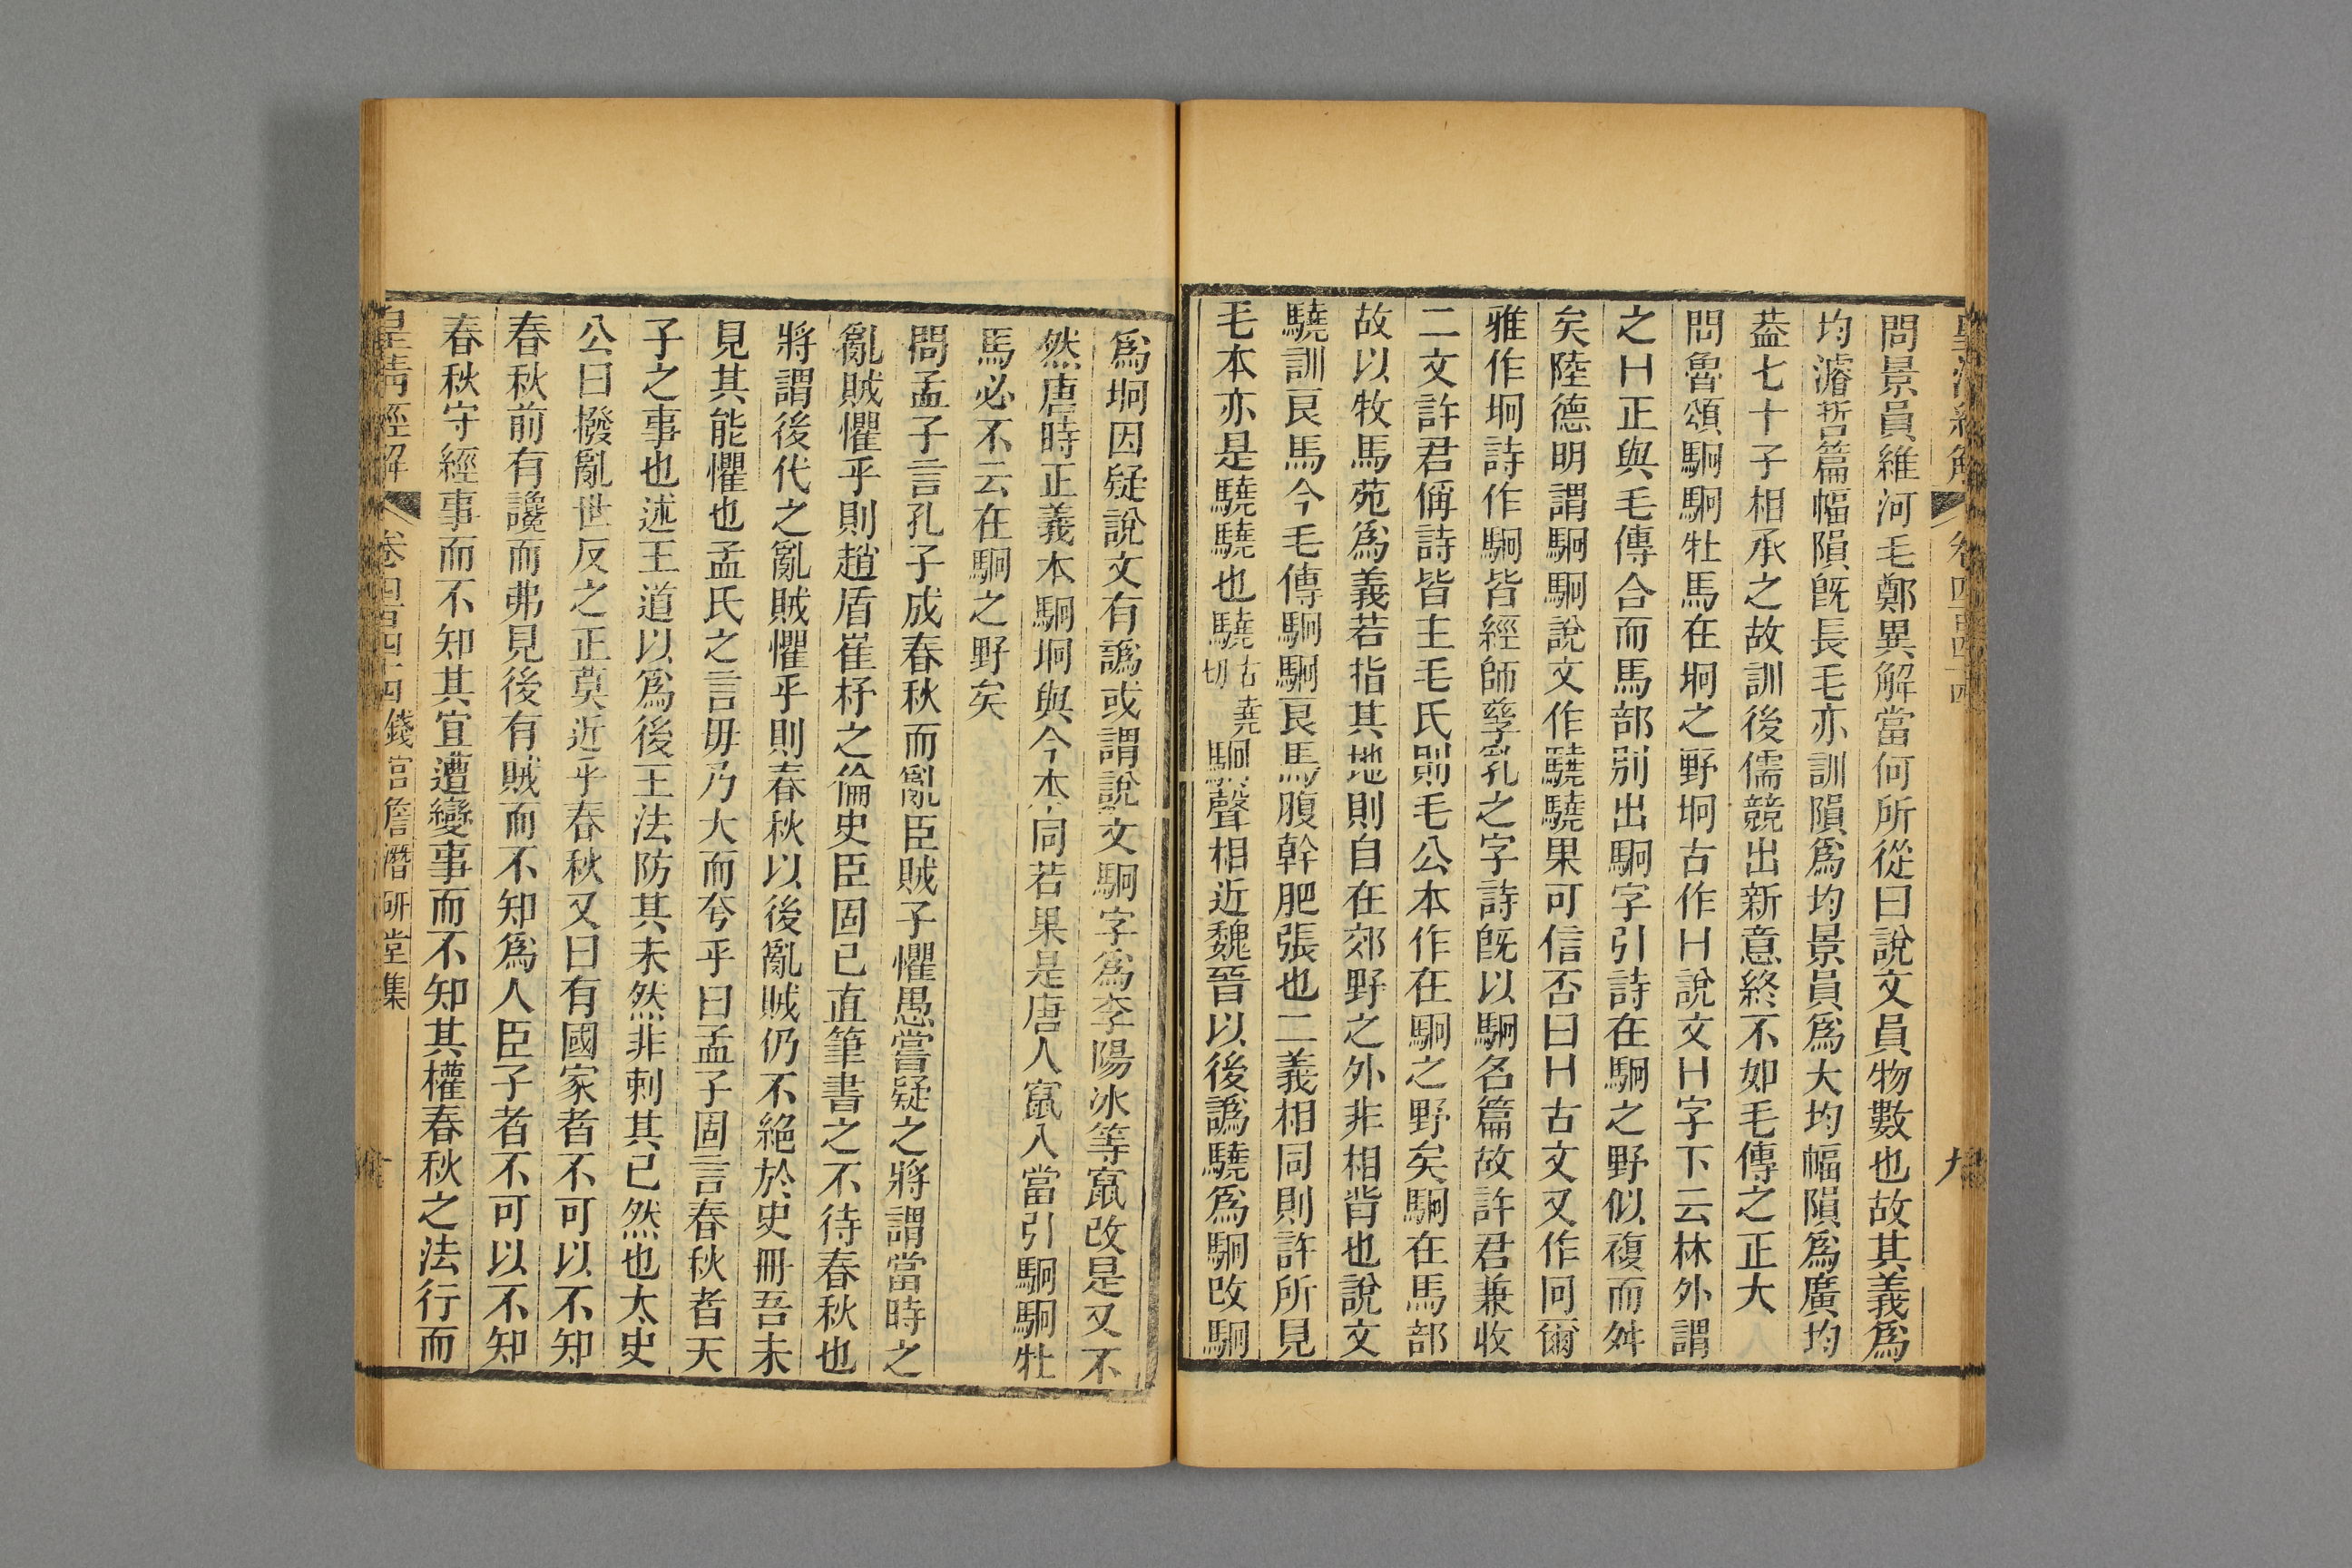 皇清經解 卷四百四十四 九
問景員維河毛鄭異解當何所從曰說文員物數也故其義爲
均濬哲篇幅隕旣長毛亦訓隕爲均景員爲大均幅隕爲廣均
葢七十子相承之故訓後儒競出新意終不如毛傳之正大
問魯頌駉駉牡馬在坰之野坰古作H說文H字下云林外謂
之H正與毛傳合而馬部別出駉字引詩在駉之野似複而舛
矣陸德明謂駉駉說文作驍驍果可信否曰H古文又作冋爾
雅作坰詩作駉皆經師孳乳之字詩旣以駉名篇故許君兼收
二文許君偁詩皆主毛氏則毛公本作在駉之野矣駉在馬部
故以牧馬苑爲義若指其地則自在郊野之外非相背也說文
驍訓良馬今毛傳駉駉良馬腹幹肥張也二義相同則許所見
毛本亦是驍驍也驍古堯切駉聲相近魏晉以後譌驍爲駉改駉
爲坰因疑說文有譌或謂說文駉字爲李陽冰等竄改是又不
然唐時正義本駉坰與今本同若果是唐人竄入當引駉駉牡
馬必不云在駉之野矣
問孟子言孔子成春秋而亂臣賊子懼愚嘗疑之將謂當時之
亂賊懼乎則趙盾崔杼之倫史臣固已直筆書之不待春秋也
將謂後代之亂賊懼乎則春秋以後亂賊仍不絕於史冊吾未
見其能懼也孟氏之言毋乃大而夸乎曰孟子固言春秋者天
子之事也述王道以爲後王法防其未然非刺其已然也太史
公曰撥亂世反之正莫近乎春秋又曰有國家者不可以不知
春秋前有讒而弗見後有賊而不知爲人臣子者不可以不知
春秋守經事而不知其宜遭變事而不知其權春秋之法行而
皇清經解 卷四百四十四 錢宮詹潛研堂集 十